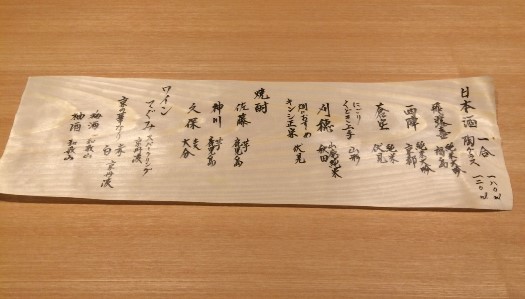 日本酒 一合 一八〇ml
グラス 一二〇ml
純米大吟 福島
純米大吟 京都
蒼空 純米 伏見
にごり くどき上手 山形
刈穂 山廃純米 秋田
キンシ正宗 伏見
焼酎
佐藤 芋 鹿児島
神川 芋 鹿児島
久保 麦 大分
ワイン
てぐみ スパークリング 京丹波
京の華やぎ 赤 白 京丹波
梅酒 和歌山
柚酒 和歌山